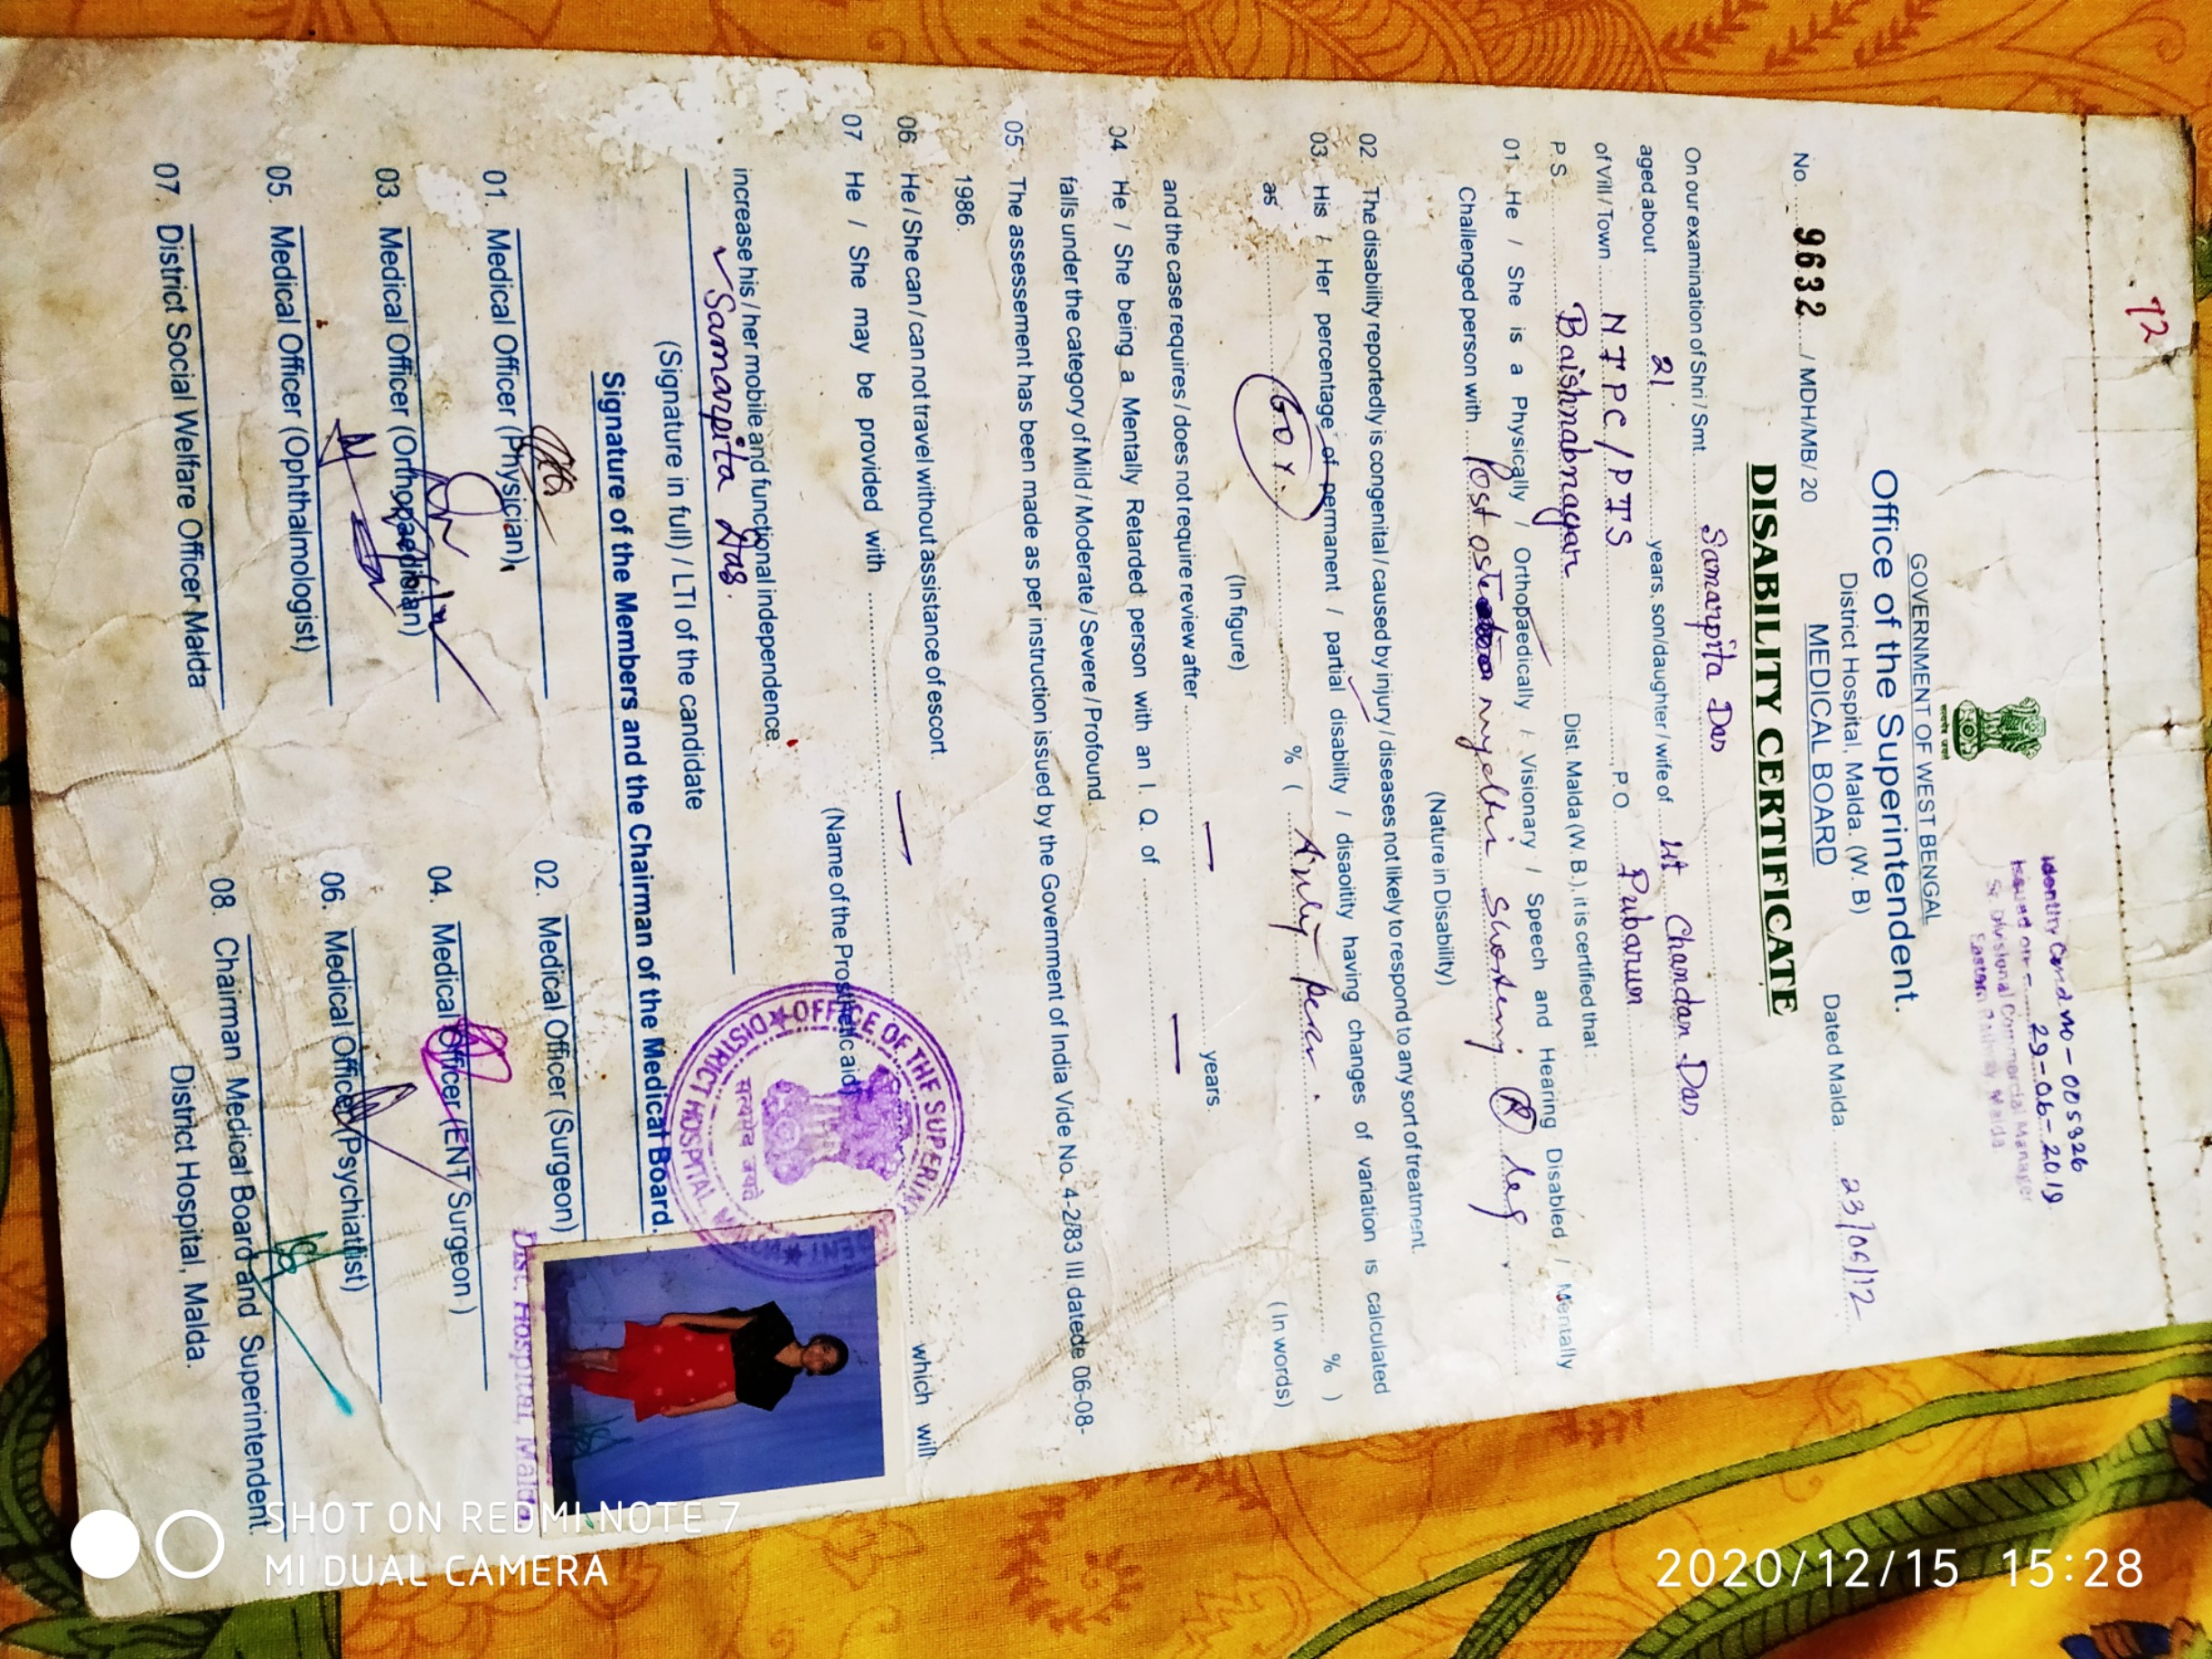 72
Identity Card no - 005326
Issued on - 29-06-2019
Sr. Divisional Commercial Manager
Eastern Railway, Malda
सत्यमेव जयते
GOVERNMENT OF WEST BENGAL
Office of the Superintendent.
District Hospital, Malda. (W. B)
MEDICAL BOARD
No. 9632 / MDH/MB/ 20 Dated Malda 23/06/12
DISABILITY CERTIFICATE
On our examination of Shri / Smt Samarpita Das
aged about 21 years, son/daughter / wife of Lt Chandan Das
of Vill / Town NTPC/PTS P.O. Pubarun
P.S. Baishnabnagar Dist. Malda (W. B.), it is certified that :
01. He / She is a Physically / Orthopaedically / Visionary / Speech and Hearing Disabled / Mentally
Challenged person with Post myelitis shortening R leg
(Nature in Disability)
02. The disability reportedly is congenital / caused by injury / diseases not likely to respond to any sort of treatment.
03. His / Her percentage of permanent / partial disability / disaoitity having changes of variation is calculated
as 60%. % ( % )
(In figure) (In words)
and the case requires / does not require review after — years
04. He / She being a Mentally Retarded person with an I. Q. of —
falls under the category of Mild / Moderate / Severe / Profound.
05. The assessement has been made as per instruction issued by the Government of India Vide No. 4-2/83 III datede 06-08-
1986.
06. He / She can / can not travel without assistance of escort.
07. He / She may be provided with — which will
(Name of the Prosthetic aid)
increase his / her mobile and functional independence.
Samarpita Das.
(Signature in full) / LTI of the candidate
OFFICE OF THE SUPERINTENDENT
DISTRICT HOSPITAL, MALDA
सत्यमेव जयते
Signature of the Members and the Chairman of the Medical Board.
01. Medical Officer (Physician)
02. Medical Officer (Surgeon)
03. Medical Officer (Orthopaedibian)
04. Medical Officer (ENT Surgeon )
05. Medical Officer (Ophthalmologist)
06. Medical Officer (Psychiatiist)
07. District Social Welfare Officer Malda
08. Chairman Medical Board and Superintendent
District Hospital, Malda.
Dist. Hospital, Malda
SHOT ON REDMI NOTE 7
MI DUAL CAMERA
2020/12/15 15:28